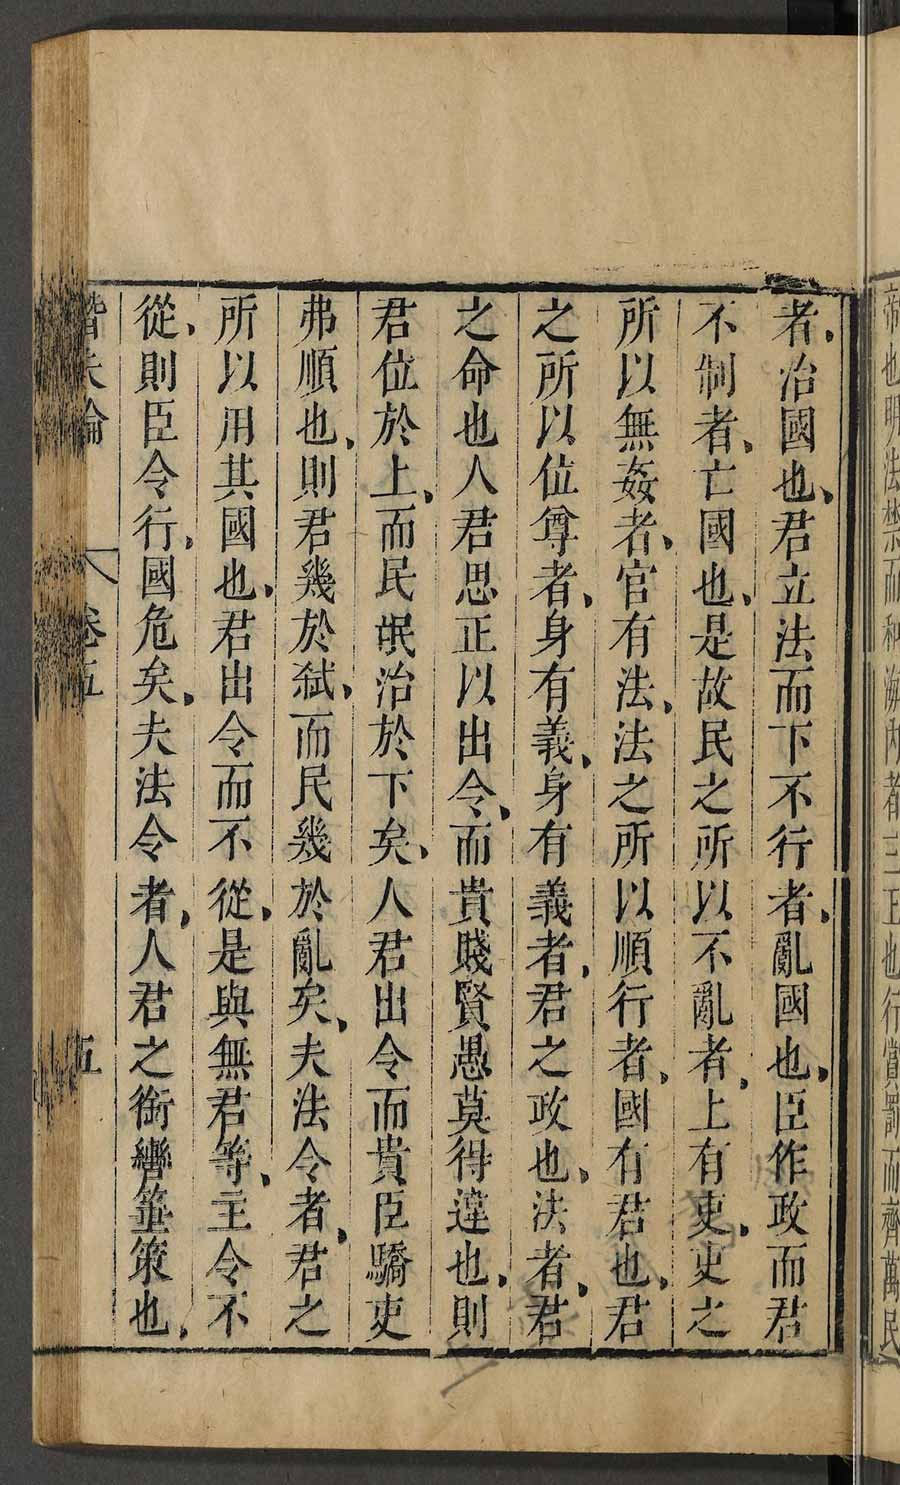 帝也明法禁而和海內者三王也行賞罰而齊萬民
者治國也君立法而下不行者亂國也臣作政而君
不制者亡國也是故民之所以不亂者上有吏吏之
所以無姦者官有法法之所以順行者國有君也君
之所以位尊者身有義身有義者君之政也法者君
之命也人君思正以出令而貴賤賢愚莫得違也則
君位於上而民氓治於下矣人君出令而貴臣驕吏
弗順也則君幾於弒而民幾於亂矣夫法令者君之
所以用其國也君出令而不從是與無君等主令不
從則臣令行國危矣夫法令者人君之銜轡箠策也
潛夫論 卷五 五